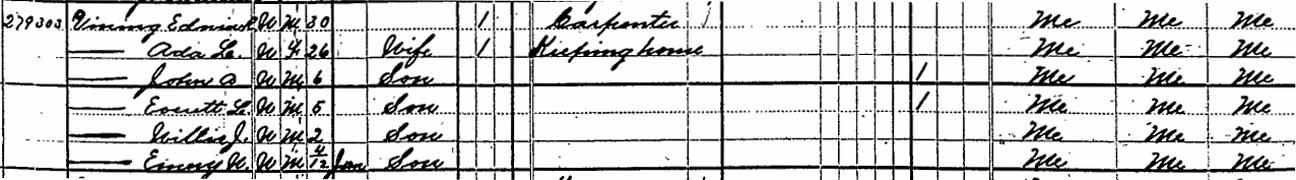 279 303 Vining Edwin R. W M 30 1 Carpenter 1 Me Me Me
— Ada L. W F 26 Wife 1 Keeping house Me Me Me
— John A W M 6 Son 1 Me Me Me
— Everett L. W M 5 Son 1 Me Me Me
— Willis J. W M 2 Son Me Me Me
— W M 4/12 Jan Son Me Me Me